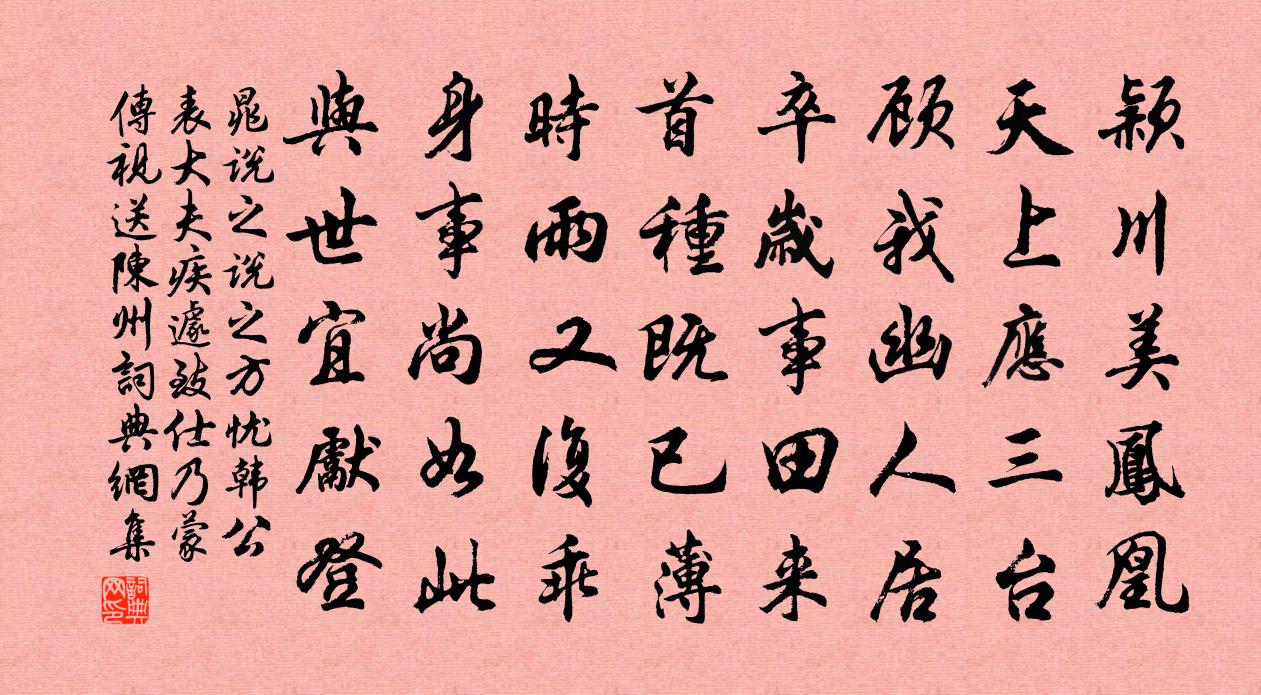 颍川美鳳凰
天上應三台
顾我幽人居
卒歲事田来
首種既已薄
時雨又復乖
身事尚如此
與世宜獻登
晁说之说之方忧韩公
表大夫疾遽致仕乃蒙
傳視送陳州詞典網集
詞典网印